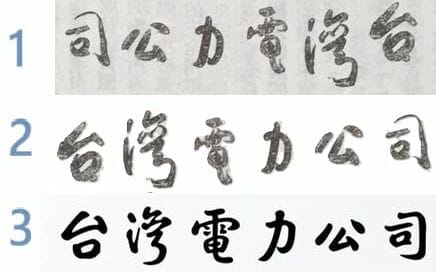 1 台灣電力公司
2 台灣電力公司
3 台灣電力公司